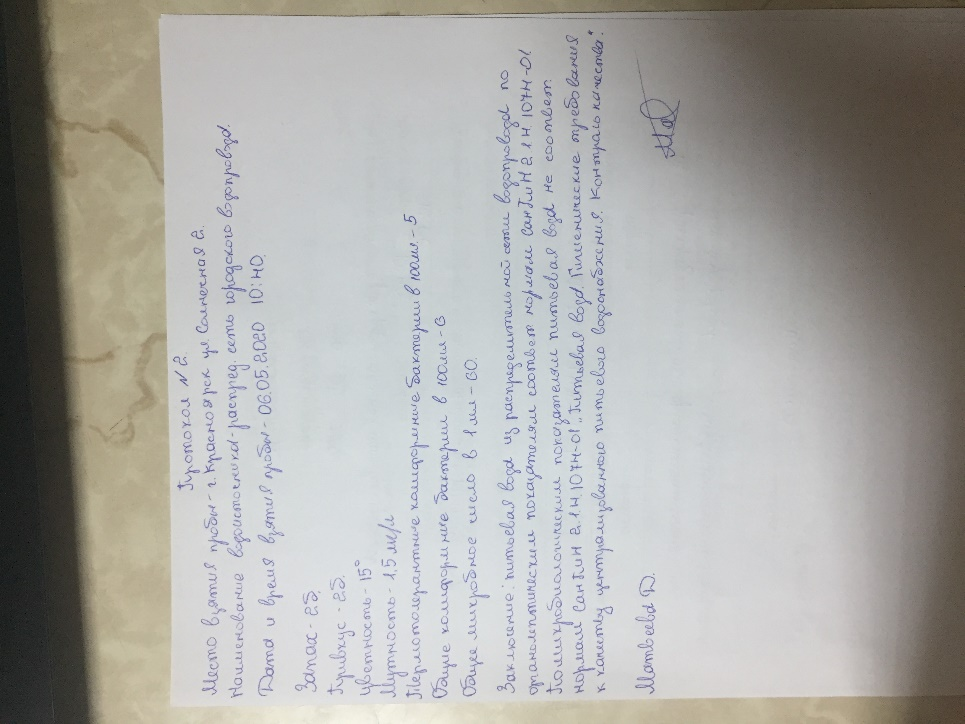 Протокол №2.
Место взятия пробы - г. Красноярск ул Солнечная 2.
Наименование водоисточника - распред. сеть городского водопровода.
Дата и время взятия пробы - 06.05.2020 10:40.
Запах - 2б.
Привкус - 2б.
Цветность - 15°
Мутность - 1,5 мг/л
Термотолерантные колиформные бактерии в 100мл - 5
Общие колиформные бактерии в 100мл - 6
Общее микробное число в 1 мл - 60.
Заключение: питьевая вода из распределительной сети водопровода по
органолептическим показателям соответ нормам СанПиН 2.1.4.1074-01.
По микробиологическим показателям питьевая вода не соответ.
нормам СанПиН 2.1.4.1074-01 „Питьевая вода. Гигиенические требования
к качеству централизованного питьевого водоснабжения. Контроль качества".
Матвеева Д.